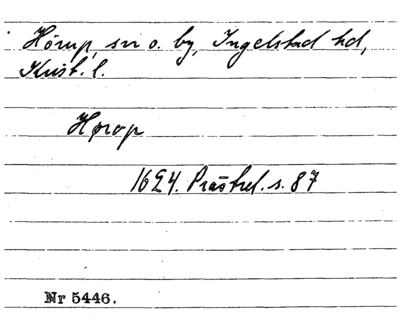 Hörup, sn o. by, Ingelstad hd,
Krist. l.
Hørop
1624. Prästrel. s. 87
Nr 5446.